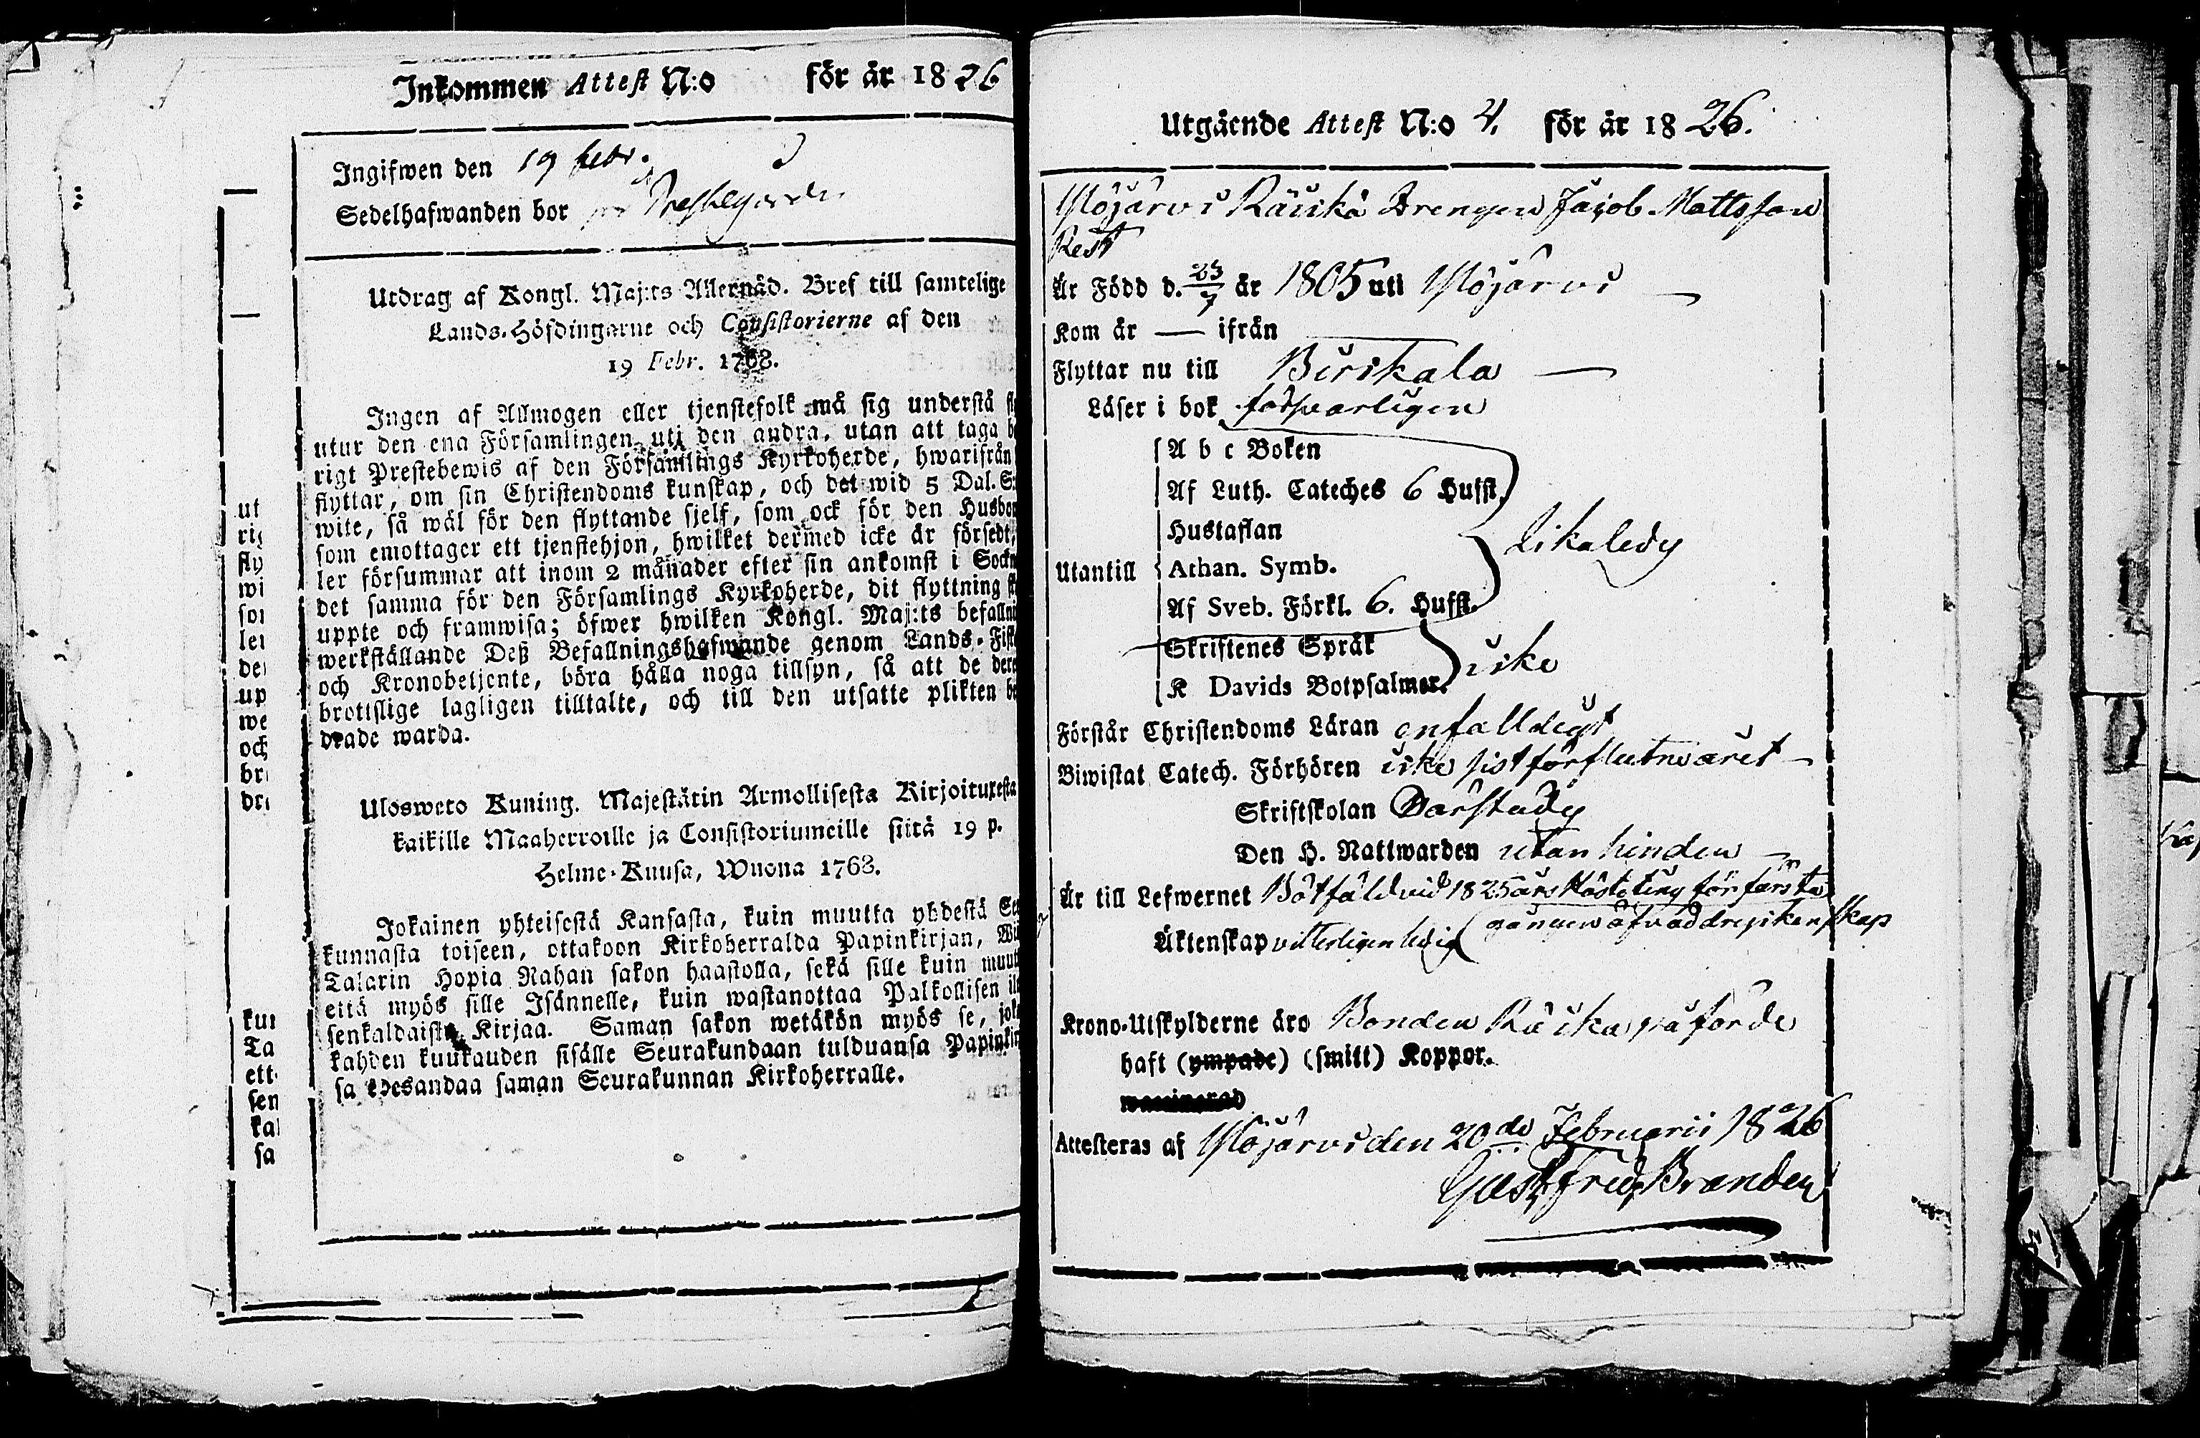 Inkommen Attest N:o för år 1826
Ingifwen den 19 febr.
Sedelhafwanden bor Prestegården
Utdrag af Kongl. Maj:ts Allernåd. Bref till samtelige
Lands-Höfdingarne och Consistorierne af den
19 Febr. 1768.
Ingen af Allmogen eller tjenstefolk må sig understå
utur den ena Församlingen uti den andra, utan att taga
rigt Prestebewis af den Församlings Kyrkoherde, hwarifrån
flyttar, om sin Christendoms kunskap, och det wid 5 Dal. S:
wite, så wäl för den flyttande sjelf, som ock för den Husbon
som emottager ett tjenstehjon, hwilket dermed icke är försedt,
ler försummar att inom 2 månader efter sin ankomst i Sockn
det samma för den Församlings Kyrkoherde, dit flyttning
uppte och framwisa; öfwer hwilken Kongl. Maj:ts befallni
werkställande Deß Befallningshafwande genom Lands-Fisk
och Kronobetjente, böra hålla noga tillsyn, så att de der
brottslige lagligen tilltalte, och till den utsatte plikten
drade warda.
Ulosweto Kuning. Majestätin Armollisesta Kirjoituxesta
kaikille Maaherroille ja Consistoriumeille siitä 19 p.
Helme-Kuusa, Wuona 1768.
Jokainen yhteisestä Kansasta, kuin muutta yhdestä Se
kunnasta toiseen, ottakoon Kirkoherralda Papinkirjan, Wi
Talarin Hopia Rahan sakon haastolla, sekä sille kuin muut
että myös sille Isännelle, kuin wastanottaa Palkollisen il
senkaldaista Kirjaa. Saman sakon wetäkön myös se, jok
kahden kuukauden sisälle Seurakundaan tulduansa Papinkir
sa edesandaa saman Seurakunnan Kirkoherralle.
ut
rig
fly
wi
sor
ler
det
up
we
och
bro
dra
kun
Ta
ett
sen
kal
sa
Utgående Attest N:o 4. för år 1826.
Ylöjärvi Räikkä Drengen Jacob Mattsson
Rest
Är Född d. 23/7 år 1805 uti Ylöjärvi
Kom år — ifrån —
Flyttar nu till Birkala —
Läser i bok försvarligen
A b c Boken
Af Luth. Cateches 6 Hufst.
Hustaflan
Utantill Athan. Symb. likaledes
Af Sveb. Förkl. 6. Hufst.
Skriftenes Språk
K Davids Botpsalmer. icke
Förstår Christendoms Läran enfalldigt
Biwistat Catech. Förhören icke sist förflutne året —
Skriftskolan Därstädes
Den H. Nattwarden utan hinder —
Är till Lefwernet Bötfäld vid 1825 års Hösteting för första
gången öfvad dryckenskap
Äktenskap vitterligen ledig
Krono-Utskylderne äro Bonden Räikä påförde
haft (ympade) (smitt) Koppor.
Attesteras af Ylöjärvi den 20de Februarii 1826
Gust. Fred. Branden